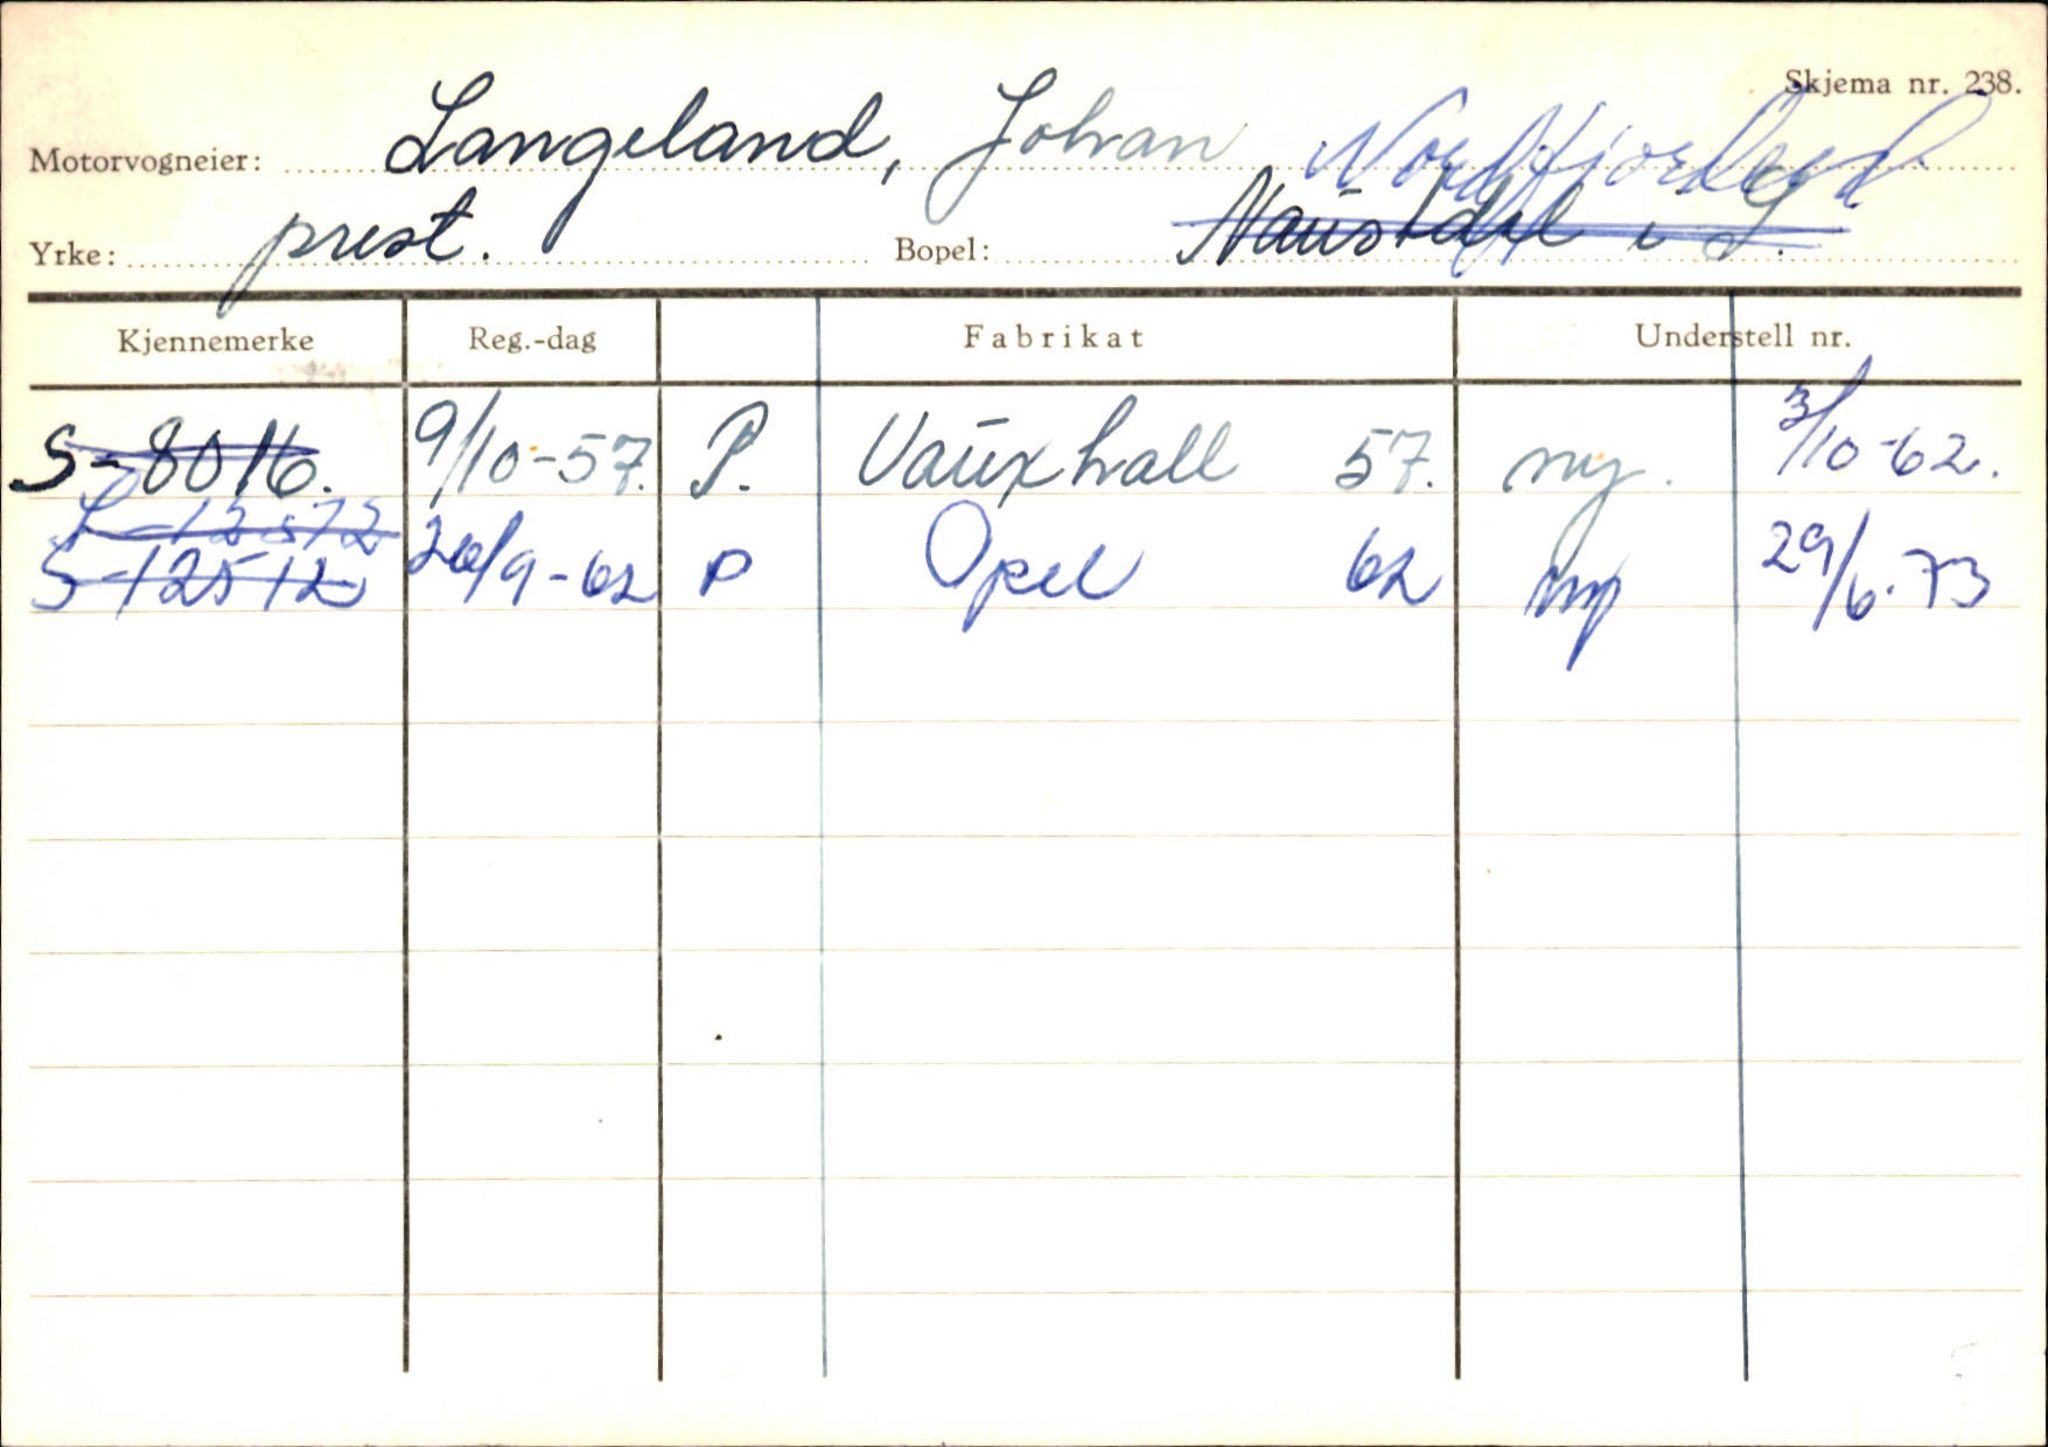 Skjema nr. 238.
Motorvogneier: Langeland, Johan Nordfjordeid
Yrke: prest. Bopel: Naustdal i S.
Kjennemerke Reg.-dag Fabrikat Understell nr.
S-8016. 9/10-57. P. Vauxhall 57. ny. 3/10-62.
S-12512 26/9-62 P Opel 62 ny 29/6.73